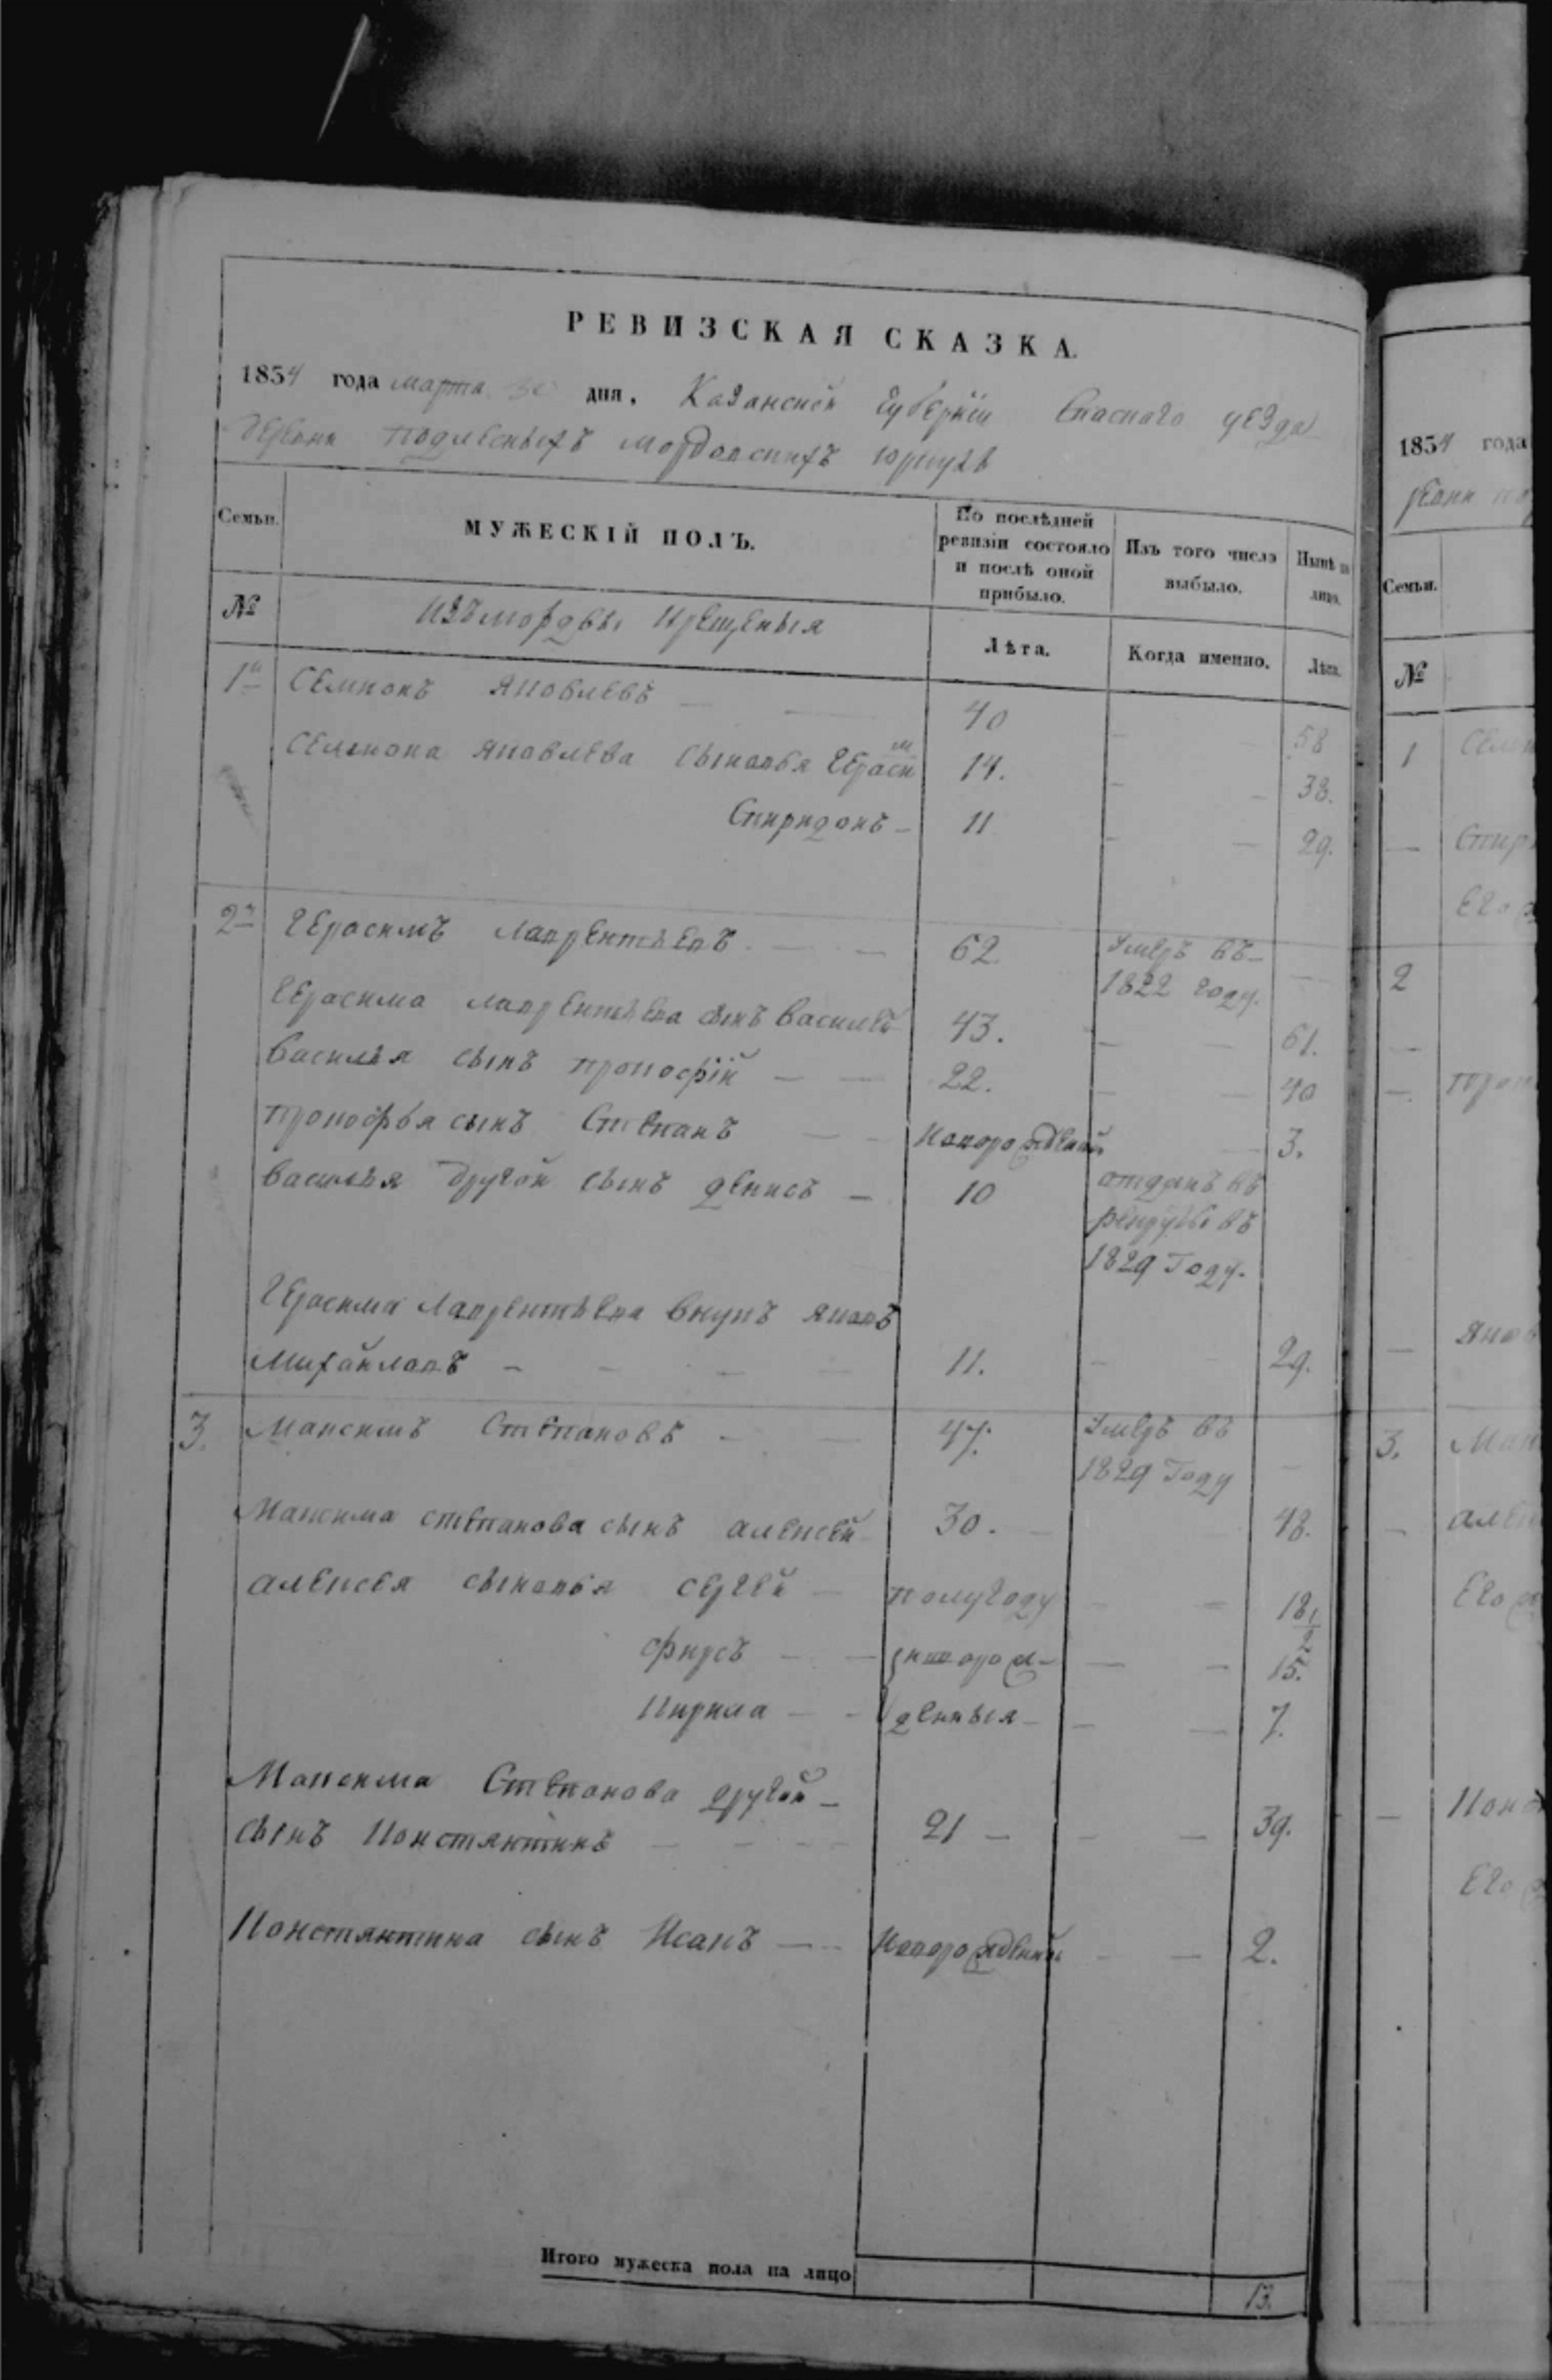 РЕВИЗСКАЯ СКАЗКА.
1834 года марта 30 дня, Казанской губернии Спаскаго уезда
деревни подлесныхъ мордовскихъ юркулѣ
Семьи. МУЖЕСКІЙ ПОЛЪ. По послѣдней ревизіи состояло и послѣ оной прибыло. Изъ того числа выбыло. Нынѣ на лицо.
№ Изъ мордвы крещеныя Лѣта. Когда именно. Лѣта.
1й Семионъ яковлевъ — 40 — 58
Семиона яковлева сыновья Герасим 14. — 38.
Спиридонъ — 11 — 29.
2й Герасимъ лаврентьевъ — 62 Умеръ въ
1822 году. —
Герасима лаврентьева сынъ василей 43. — 61.
василья сынъ прокофій — 22. — 40
прокофья сынъ Степанъ — новорожденный — 3.
василья другой сынъ денисъ — 10 отданъ въ
рекруты въ
1829 году.
Герасима лаврентьева внукъ яковъ
михайловъ — 11. — 29.
3. Максимъ Степановъ — 47. Умеръ въ
1829 году —
Максима степанова сынъ алексей 30. — 48.
алексея сыновья сергей — полугоду — 18 1/2
фирсъ — новорож- — 15.
Кирила — денныя — 7.
Максима Степанова другой —
сынъ Констянтинъ — 21 — 39.
Констянтина сынъ Исакъ — новорожденный — 2.
Итого мужеска пола на лицо 13.
1834 года
Семьи.
№
1
2
3.